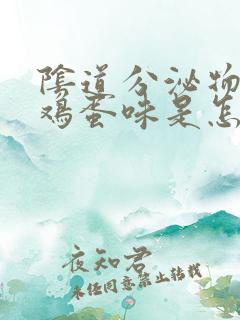 陰道分泌物
鸡蛋味是怎
夜知君
未经同意禁止转载